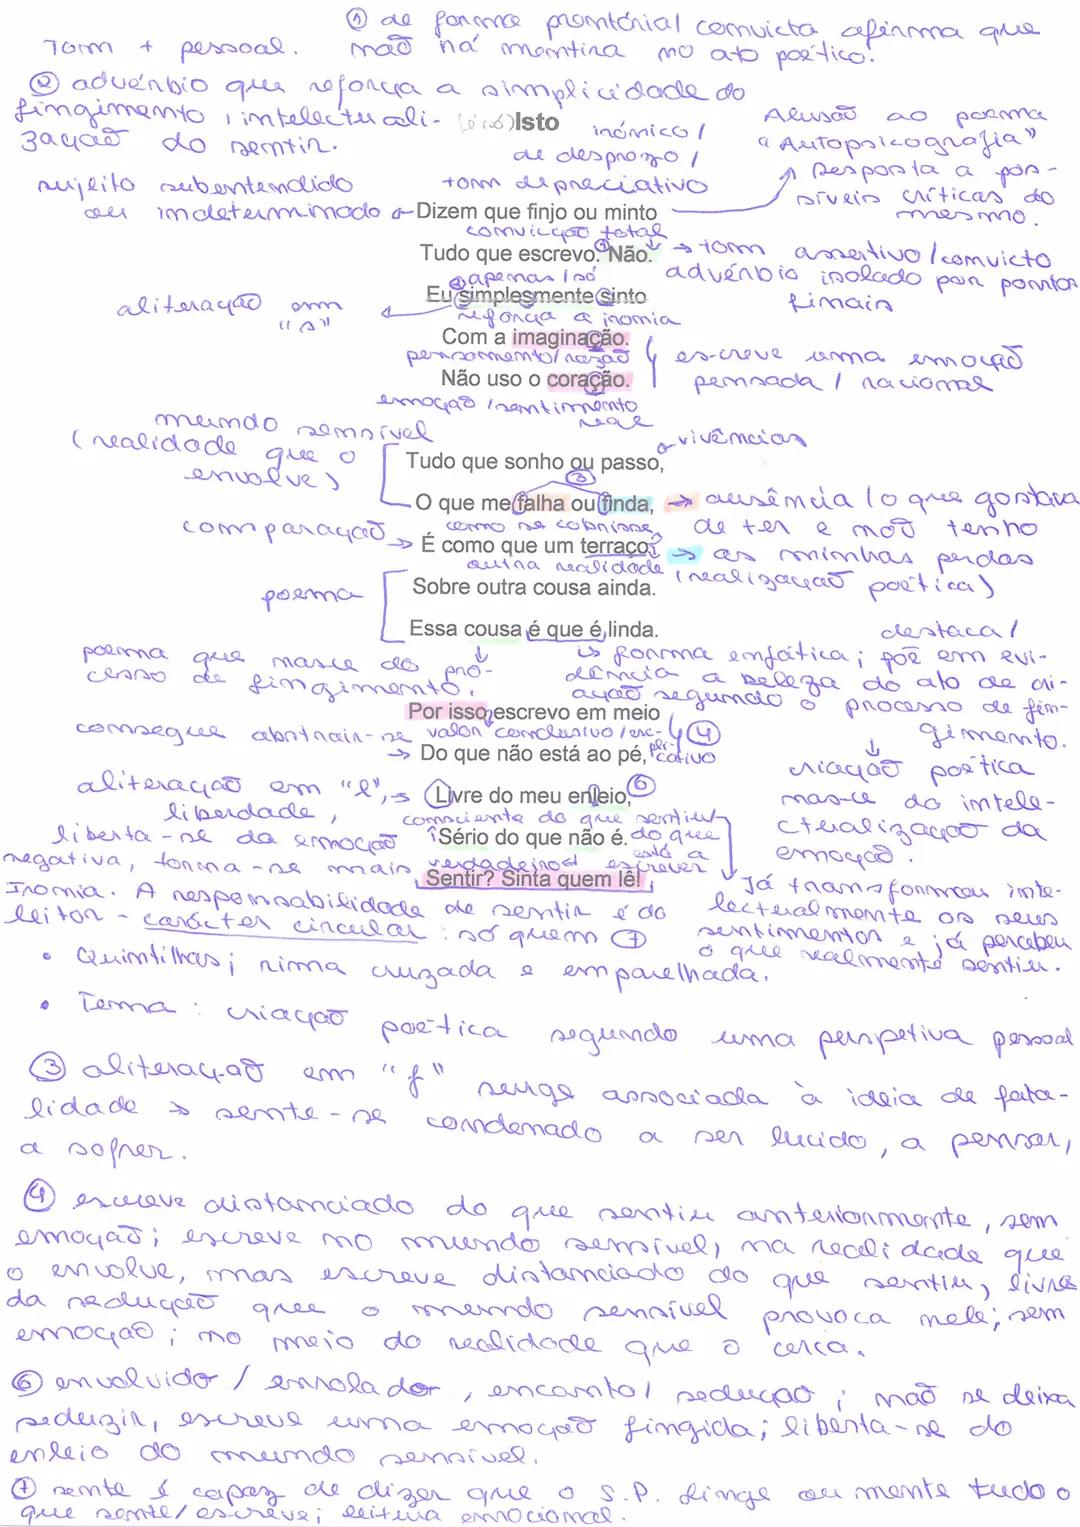 ① de forma promtórial convicta afirma que
Tom + pessoal. não há mentira no ato poético.
② advérbio que reforça a simplicidade do
fingimento, intelectuali-
zação do sentir.
(é só) Isto
irónico /
de desprezo /
tom depreciativo
Alusão ao poema
"Autopsicografia"
Resposta a pos-
síveis críticas do
mesmo.
sujeito subentendido
ou indeterminado
Dizem que finjo ou minto
convicção total
Tudo que escrevo. ① Não. → tom assertivo / convicto
advérbio isolado por pontos
finais
② apenas / só
Eu simplesmente sinto
aliteração em
"s"
reforça a ironia
Com a imaginação.
pensamento / razão
escreve uma emoção
pensada / racional
Não uso o coração.
emoção / sentimento
real
mundo sensível
(realidade que o
envolve)
vivências
Tudo que sonho ou passo,
③
O que me falha ou finda, → ausência / o que gostava
de ter e não tenho
como se cobrisse
comparação → É como que um terraço → as minhas perdas
outra realidade (realização poética)
poema
Sobre outra cousa ainda.
Essa cousa é que é linda.
destaca /
poema que nasce do pro-
cesso de fingimento.
↳ forma enfática; põe em evi-
dência a beleza do ato de cri-
ação segundo o processo de fin-
gimento.
Por isso escrevo em meio
valor conclusivo / ex-
plicativo
④
consegue abstrair-se → Do que não está ao pé,
criação poética
nasce do intele-
ctualização da
emoção.
aliteração em "l", → Livre do meu enleio, ⑥
liberdade,
liberta-se da emoção
negativa, torna-se mais verdadeiro
consciente do que sentiu
Sério do que não é. do que
está a
escrever
Sentir? Sinta quem lê!
Já transformou inte-
lectualmente os seus
sentimentos e já percebeu
o que realmente sentiu.
Ironia. A responsabilidade de sentir é do
leitor - carácter circular: só quem ⑦
• Quintilhas; rima cruzada e emparelhada.
• Tema: criação poética segundo uma perspetiva pessoal
③ aliteração em "f" surge associada à ideia de fata-
lidade → sente-se condenado a ser lúcido, a pensar,
a sofrer.
④ escreve distanciado do que sentiu anteriormente, sem
emoção; escreve no mundo sensível, na realidade que
o envolve, mas escreve distanciado do que sentiu, livre
da sedução que o mundo sensível provoca nele; sem
emoção; no meio do realidade que o cerca.
⑥ envolvido / enrolador, encanto / sedução; não se deixa
seduzir, escreve uma emoção fingida; liberta-se do
enleio do mundo sensível.
⑦ sente é capaz de dizer que o S.P. finge ou mente tudo o
que sente / escreve; leitura emocional.